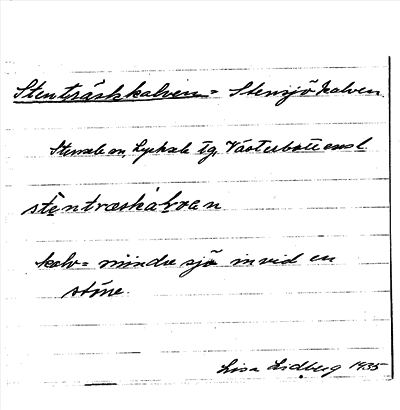 Stenträskkalven = Stensjökalven
Stensele sn, Lycksele tg, Västerbottens l.
stentræskalven
kalv = mindre sjö invid en
större.
Lisa Lidberg 1935